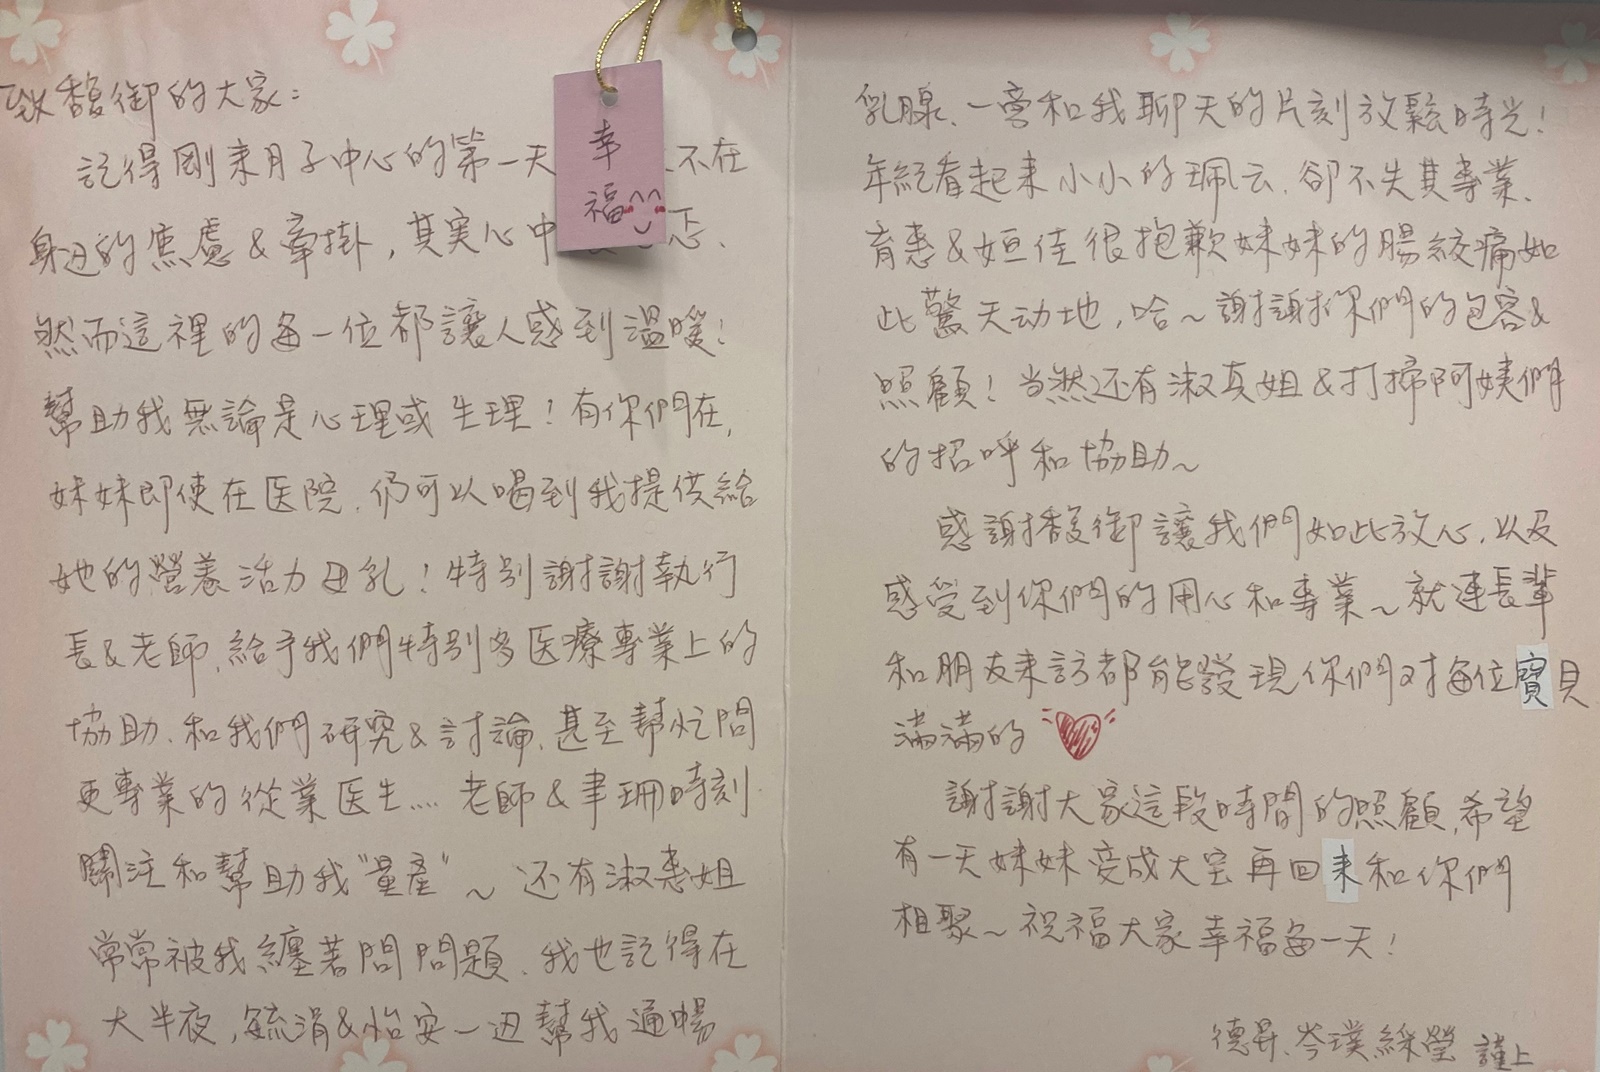 致馥御的大家：
記得剛來月子中心的第一天 不在
身边的焦慮&牽掛，其實心中
然而這裡的每一位都讓人感到溫暖！
幫助我無論是心理或生理！有你們在，
妹妹即使在医院、仍可以喝到我提供給
她的營養活力母乳！特别謝謝執行
長&老師，給予我們特别多医療專業上的
協助、和我們研究&討論、甚至幫忙問
更專業的從業医生.... 老師&聿珊時刻
關注和幫助我"量產"～ 还有淑惠姐
常常被我纏著問問題、我也記得在
大半夜，毓涓&怡安一边幫我通暢
幸
福
乳腺、一旁和我聊天的片刻放鬆時光！
年紀看起來小小的珮云、卻不失其專業、
育惠&姮佳很抱歉妹妹的腸絞痛如
此驚天动地，哈～謝謝你們的包容&
照顧！当然还有淑真姐&打掃阿姨們
的招呼和協助～
感謝馥御讓我們如此放心、以及
感受到你們的用心和專業～就連長輩
和朋友來訪都能發現你們对每位寶貝
滿滿的
謝謝大家這段時間的照顧，希望
有一天妹妹变成大宝再回來和你們
相聚～祝福大家幸福每一天！
德昇、岑璞綵瑩 謹上